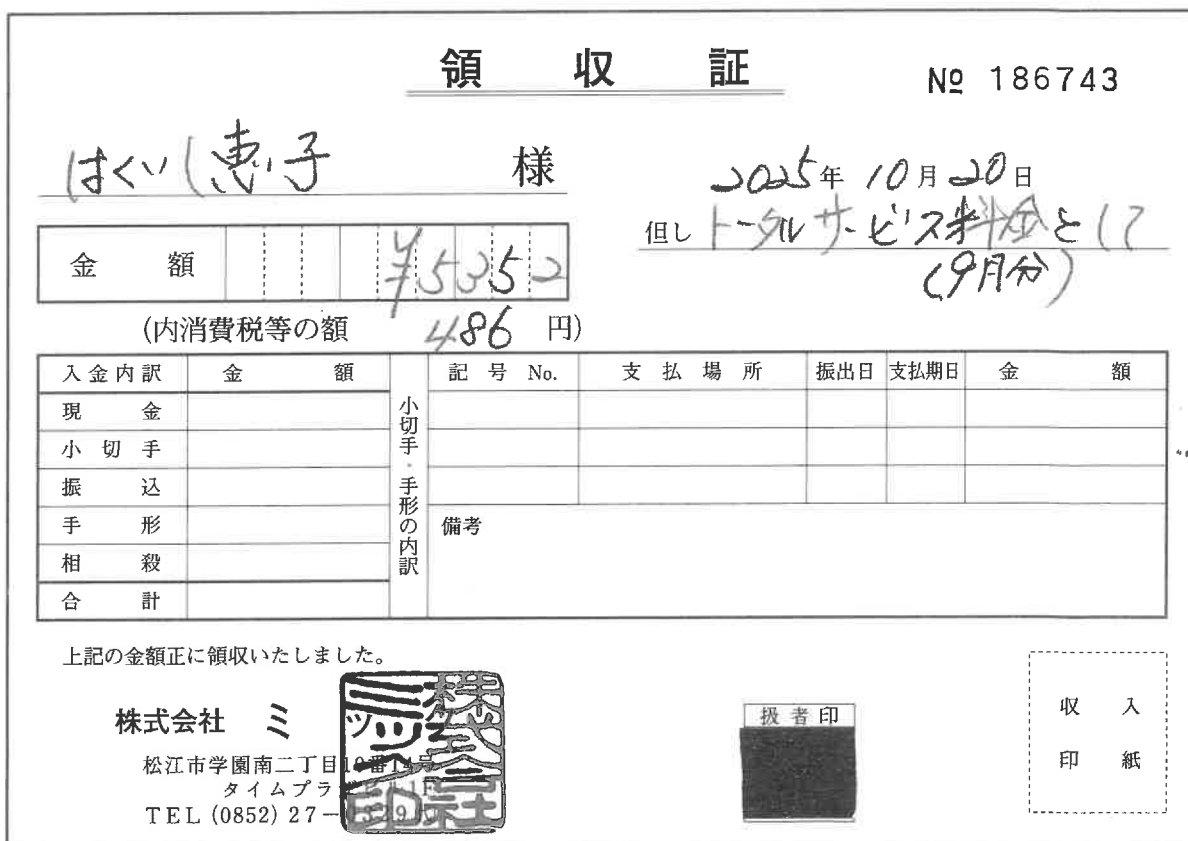 領収証
№ 186743
はくいし恵子 様
2025年10月20日
但し トータルサービス料金として
(9月分)
金額 ¥5352
(内消費税等の額 486 円)
入金内訳 金額
現金
小切手
振込
手形
相殺
合計
小切手・手形の内訳
記号No. 支払場所 振出日 支払期日 金額
備考
上記の金額正に領収いたしました。
株式会社 ミック
松江市学園南二丁目10番14号
タイムプラザビル1F
TEL (0852) 27-
扱者印
収入
印紙